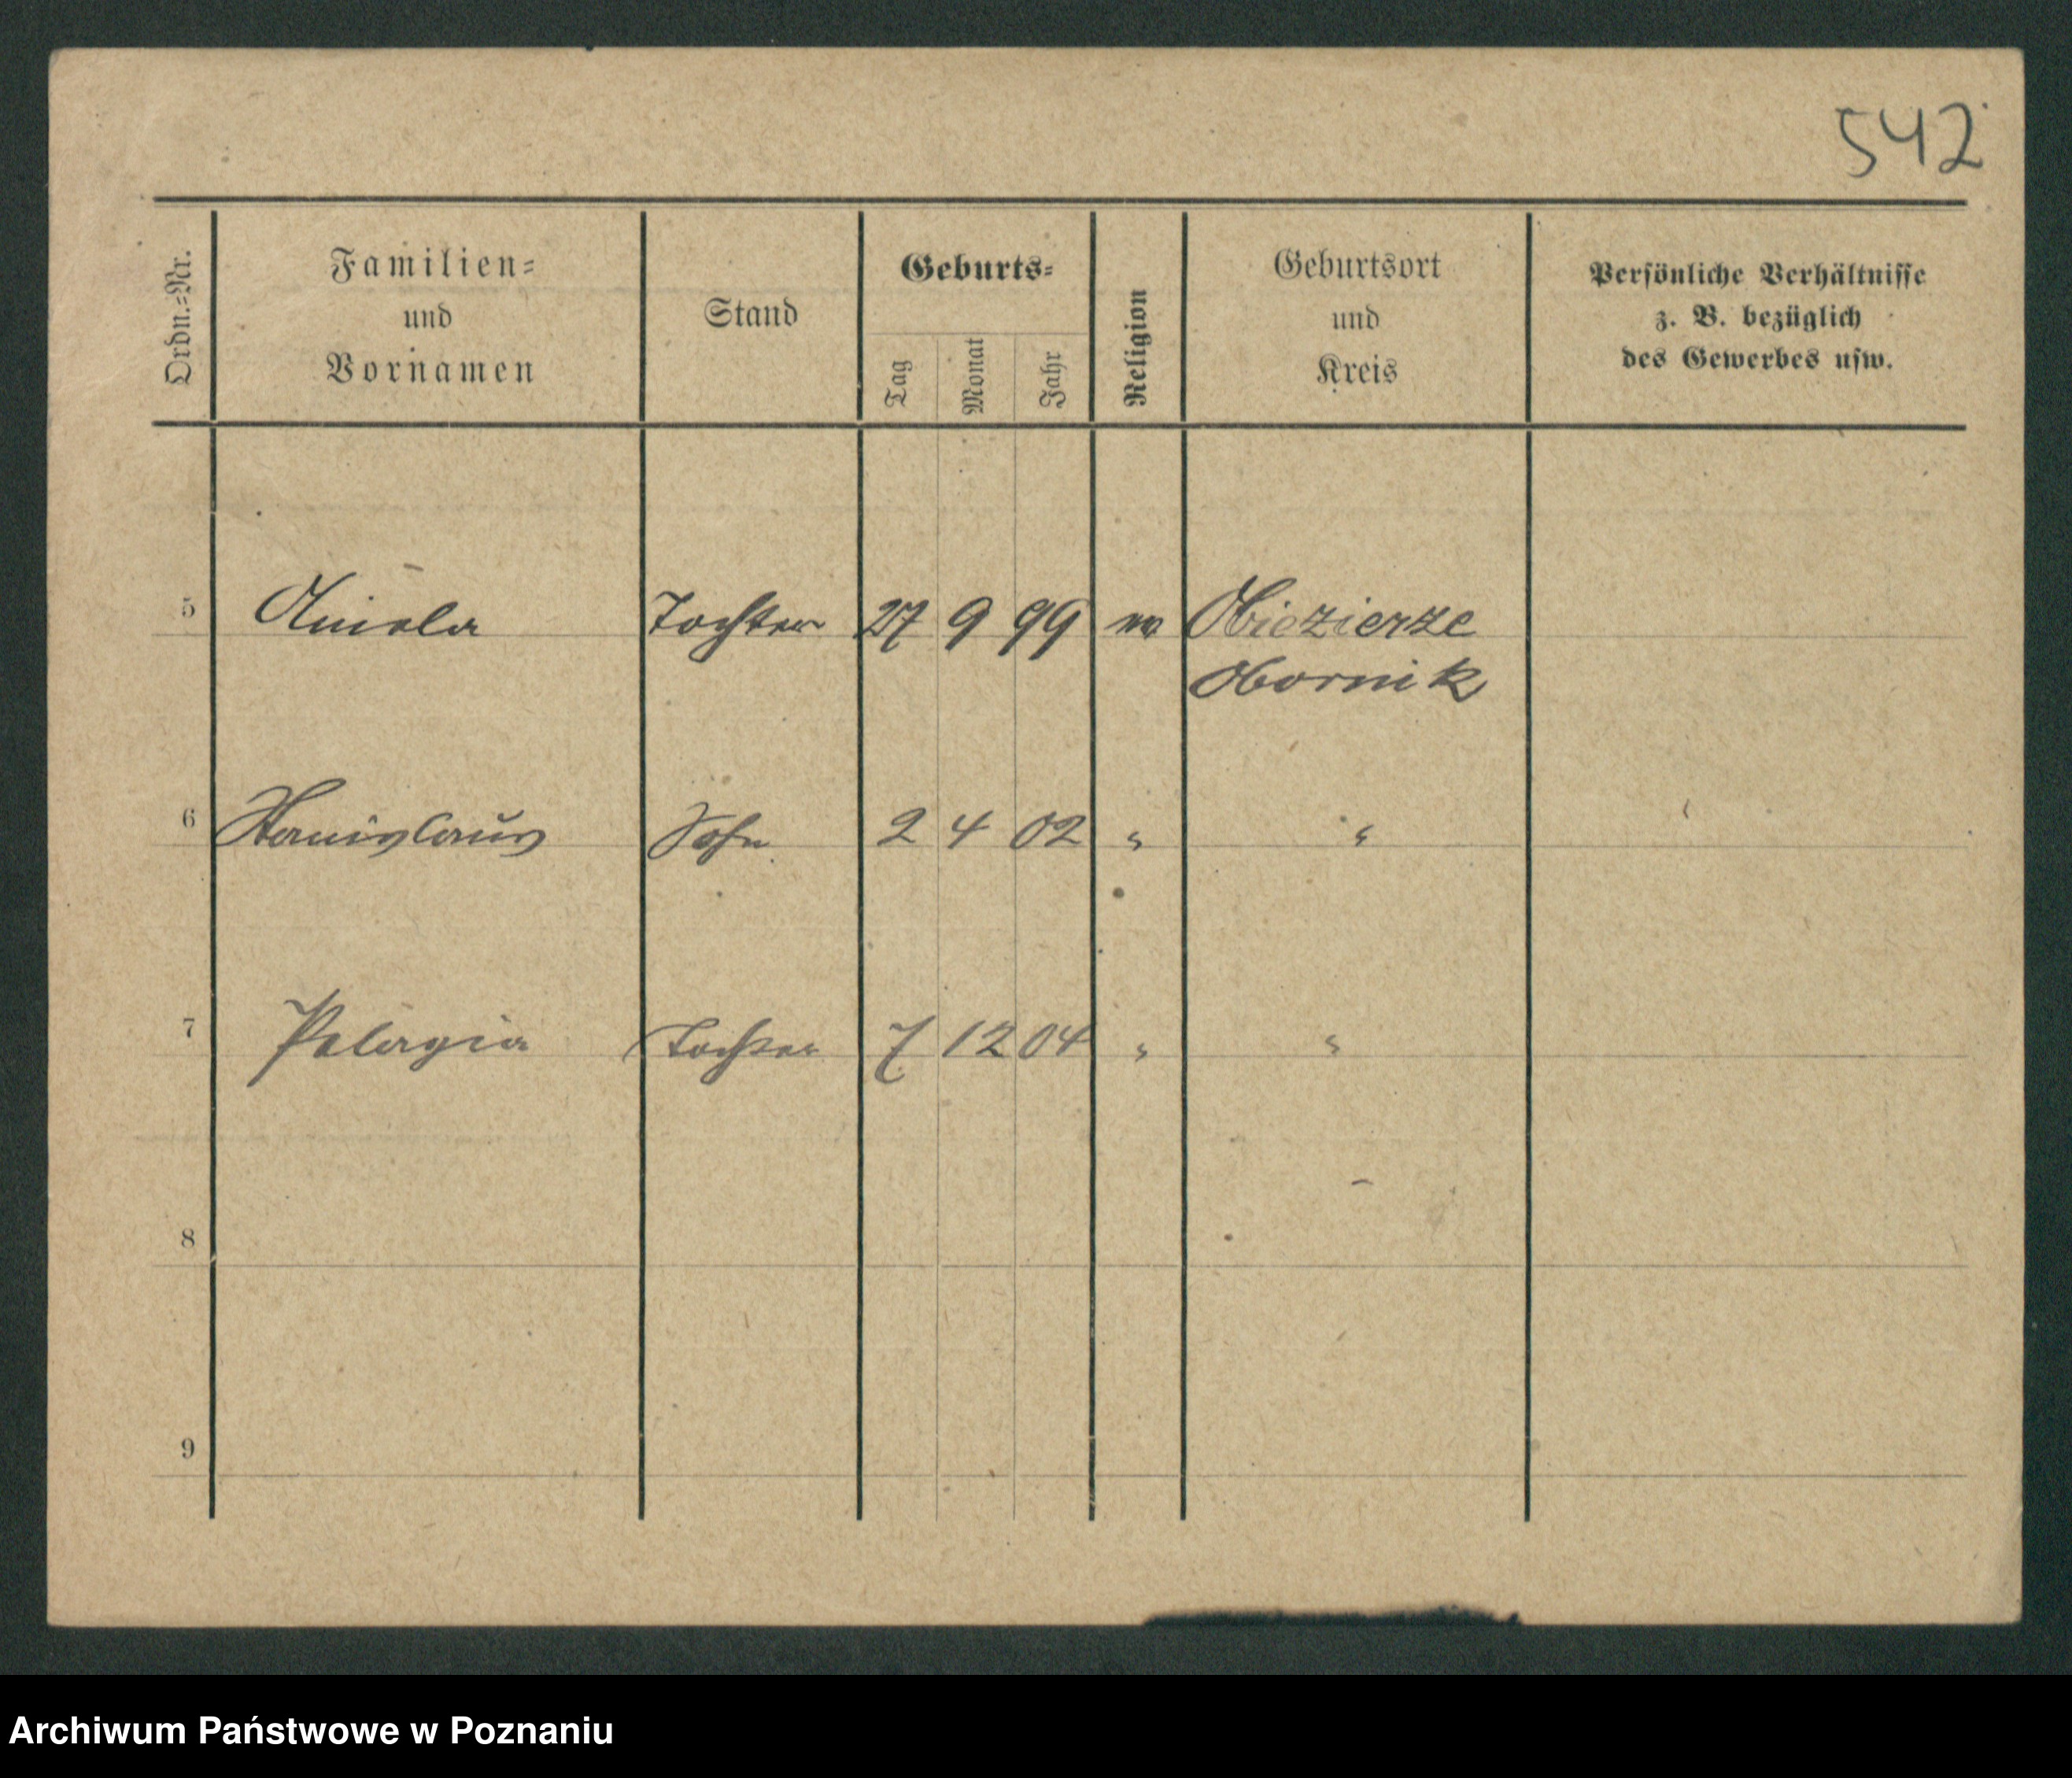 542
Ordn.=Nr.
Familien=
und
Vornamen
Stand
Geburts=
Tag
Monat
Jahr
Religion
Geburtsort
und
Kreis
Persönliche Verhältnisse
z. B. bezüglich
des Gewerbes usw.
5 Aniela Tochter 27 9 99 Obiezierze
Obornik
6 Stanislaus Sohn 2 4 02 " "
7 Pelagia Tochter 7 12 04 " "
8
9
Archiwum Państwowe w Poznaniu